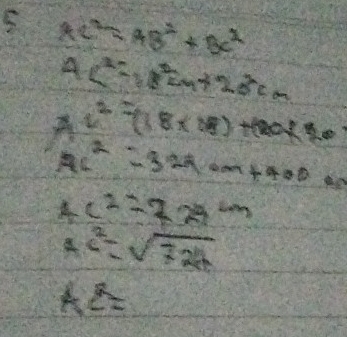 5 AC² = AB² + BC²
AC² = 18²cm + 20²cm
AC² = (18 × 18) + (20 × 20
AC² = 324 cm + 400 cm
AC² = 724 cm
AC² = √724
AC² =